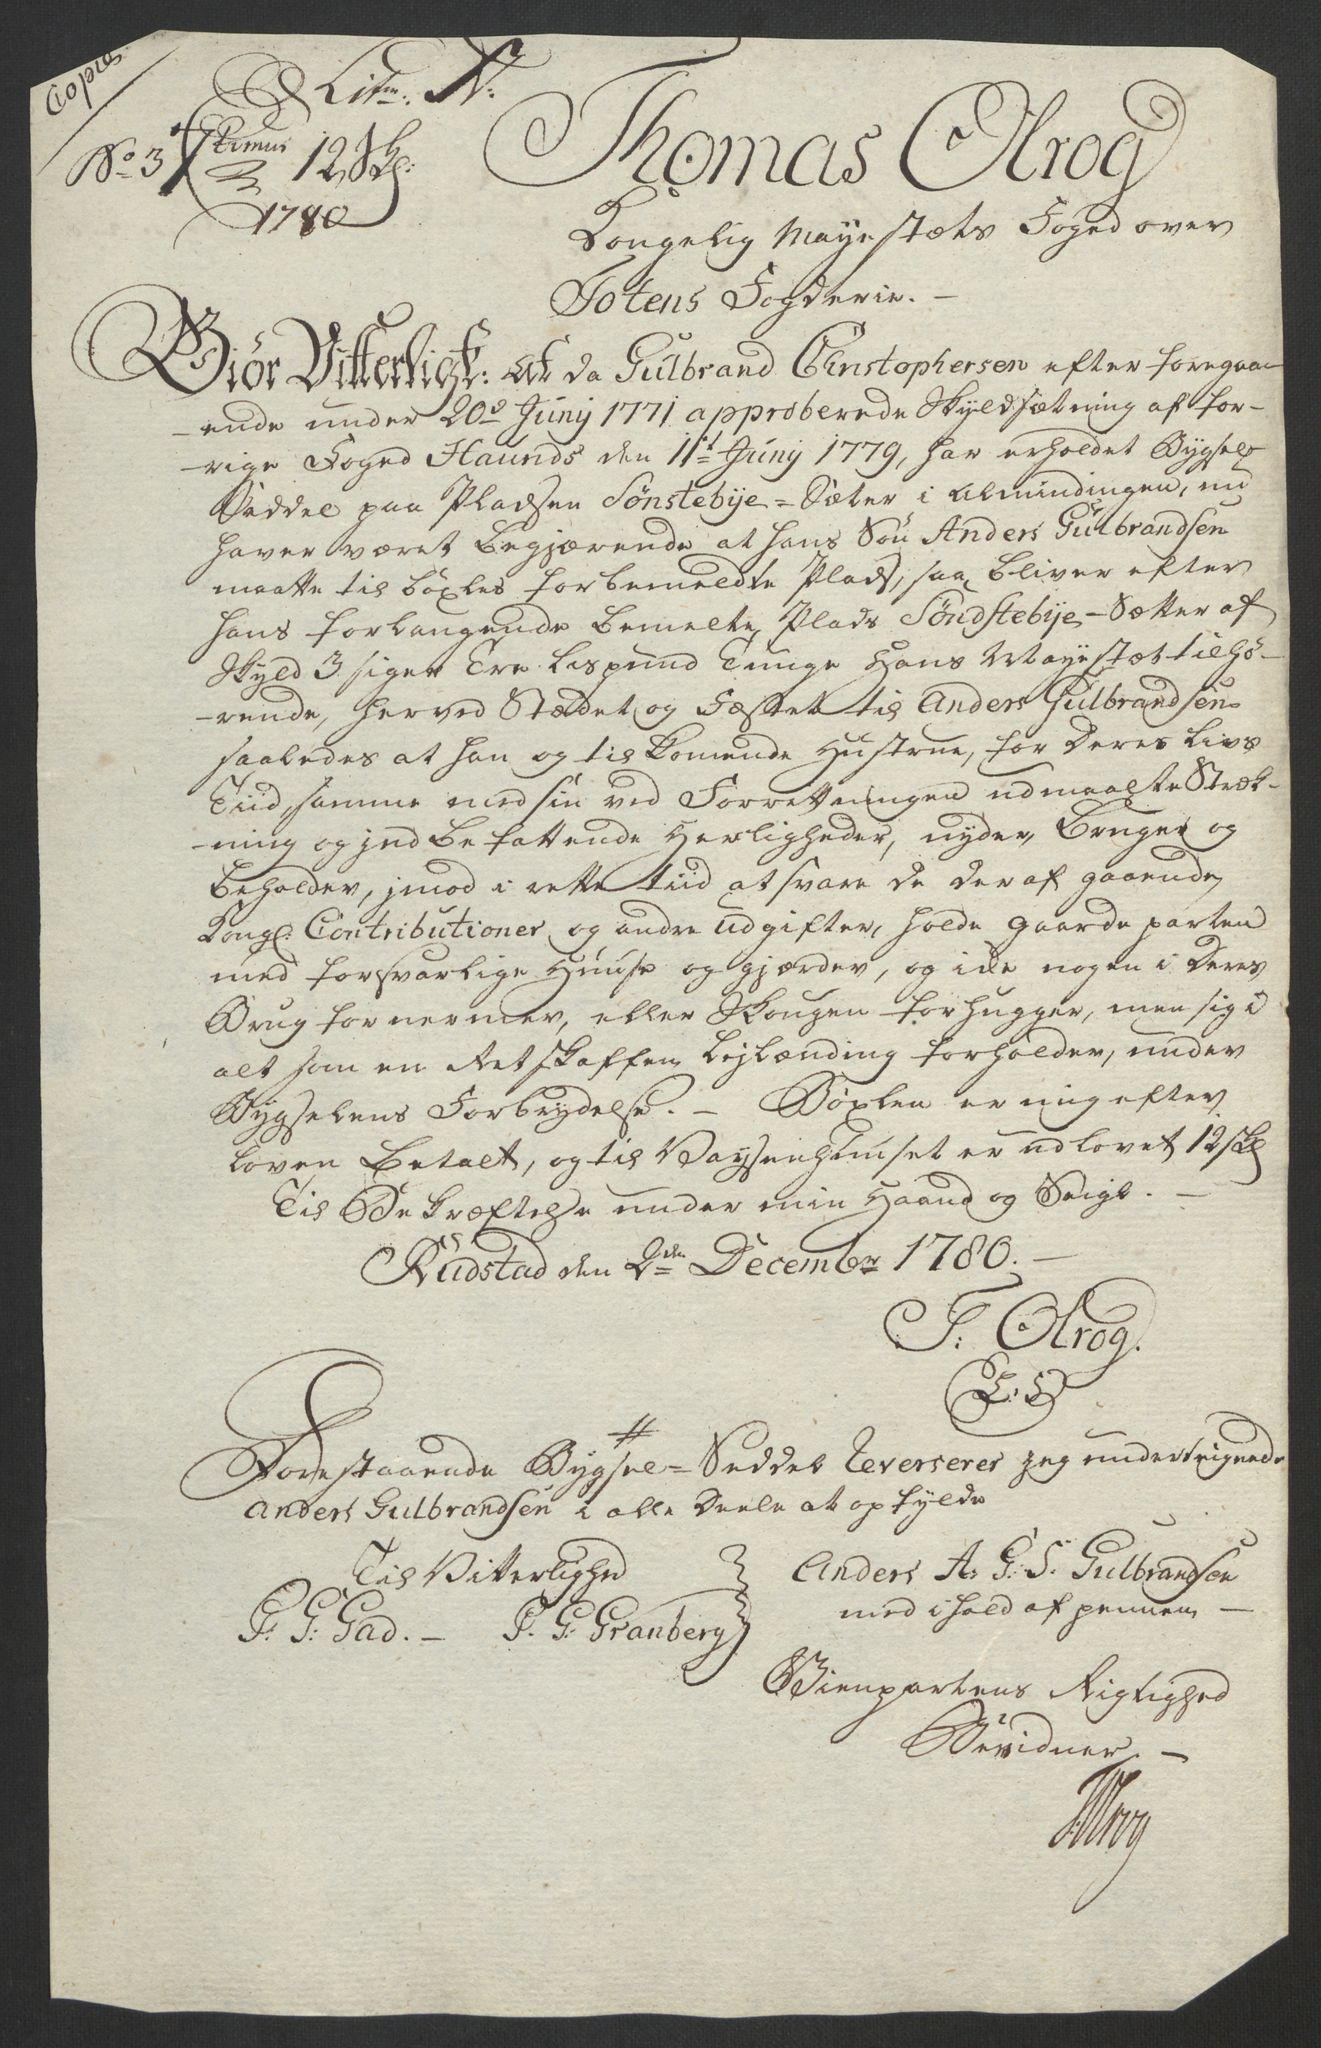 Copia
Litr: N:
No 3 12 Skl:
1780
Thomas Olrog
Kongelig Mayestæts Foged over
Totens Fogderie. —
Giør Vitterligt: At da Gulbrand Christophersen efter foregaa-
-ende under 20de Junij 1771 approberede Skyldsætning af for-
-rige Foged Haunds den 11te Junij 1779, har erholdet Bygsel
Seddel paa Pladsen Sønstebÿe = Sæter i Almindingen, nu
haver været begjærende at hans Søn Anders Gulbrandsen
maatte til bøxles forbemeldte Plads, saa bliver efter
hans forlangende bemelte Plads Søndstebÿe - Sætter af
Skyld 3 siger Tre Lispund Tunge Hans Mayestæt tilhø-
-rende, herved Stædet og Fæstet til Anders Gulbrandsen
saaledes at han og tilkomende Hustrue, for Deres Livs
Tiid, samme med sin ved Forrettningen udmaalte Stræk-
-ning og jndbefattende Herligheder, nyder, bruger og
beholder, jmod i rette tiid at svare de deraf gaaende
Kongl: Contributioner og andre udgifter, holde gaarde parten
med forsvarlige Huuse og gjærder, og ikke nogen i Deres
Brug fornermer, eller Skougen forhugger, men sig i
alt som en Retskaffen Lejlænding forholder, under
Bygselens Forbrydelse. — Bøxlen er mig efter
loven betalt, og til Vaysenhuuset er udlovet 12 skl
Til Bekræftelse under min Haand og Seigl. —
Rudstad den 2den Decembr 1780. —
T: Olrog.
L: S
Forestaaende Bygsel = Seddel reverserer jeg undertegnede
Anders Gulbrandsen i alle Deele at opfylde
Til Vitterlighed
Anders A: G: S. Gulbrandsen
G: Gad. — P. G: Granberg
med ihold af pennen —
Gienpartens Rigtighed
Bevidner. —
TOlrog